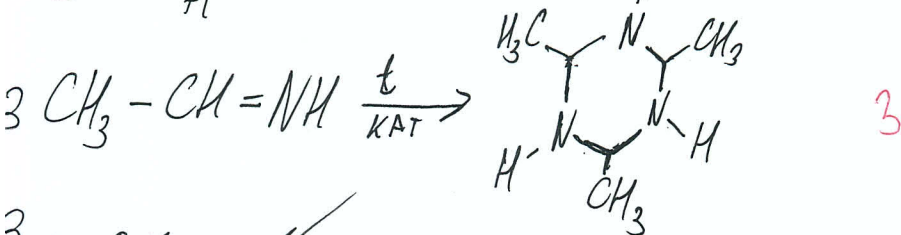 H
3 CH3 - CH = NH t KAT → H3C N CH3 N H N H CH3 3
3